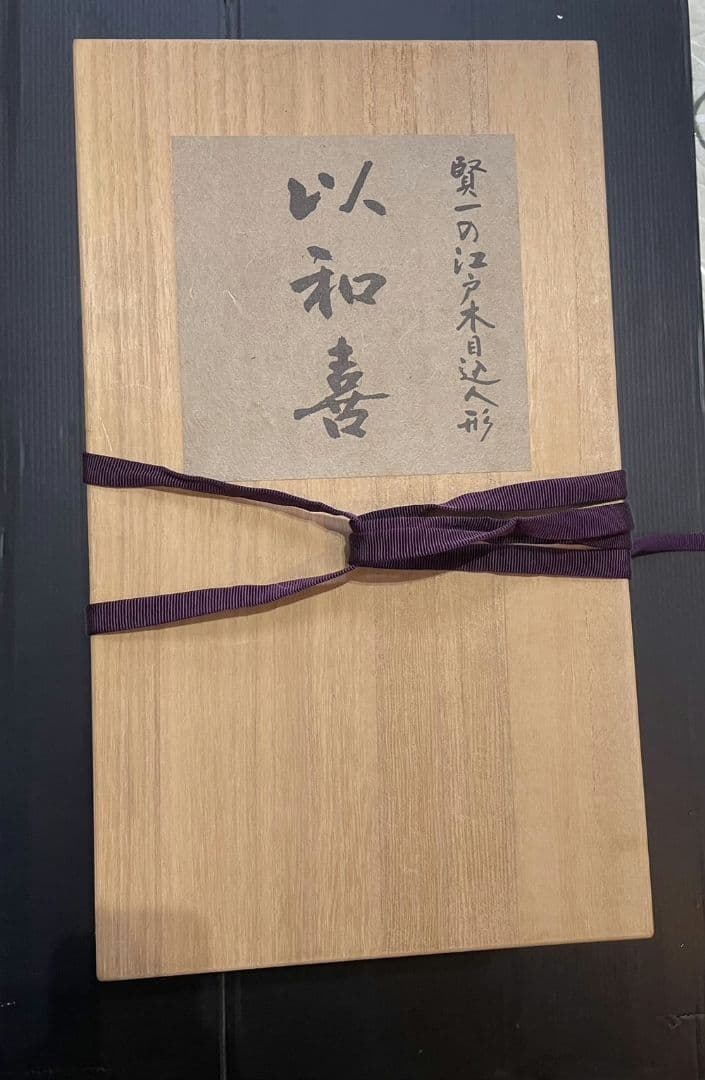 賢一の江戸木目込人形
以和喜